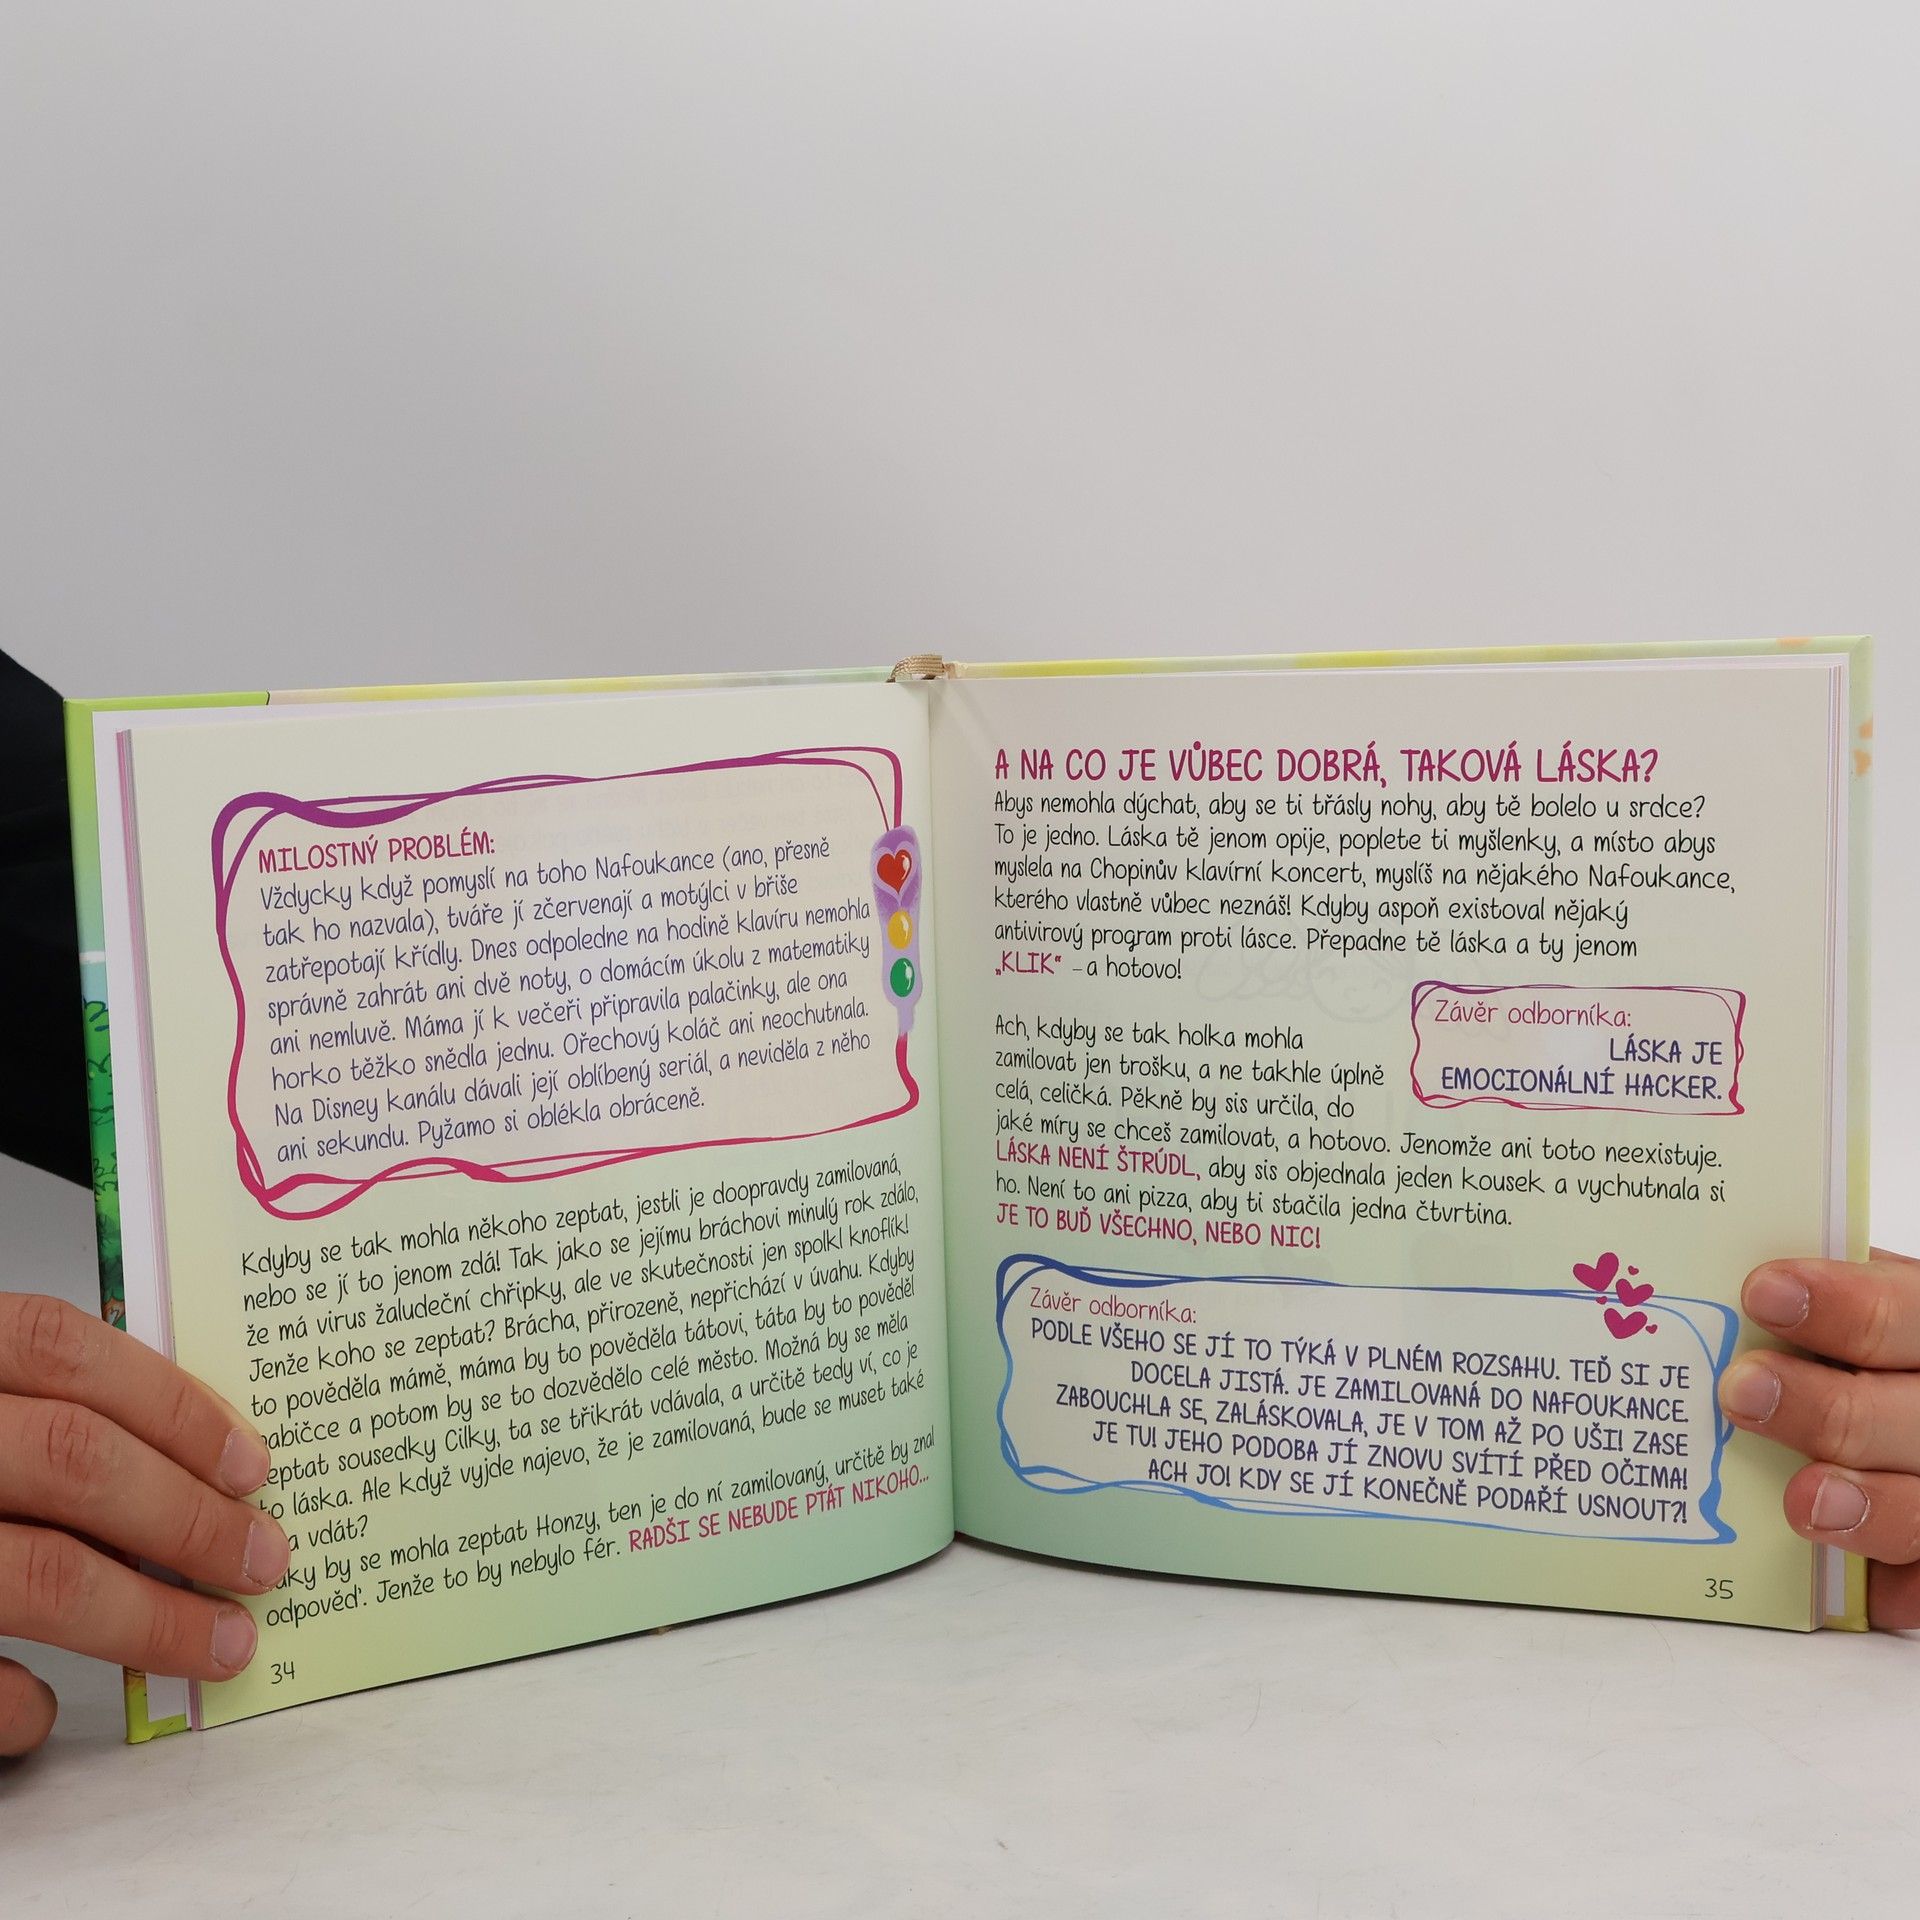 MILOSTNÝ PROBLÉM:
Vždycky když pomyslí na toho Nafoukance (ano, přesně
tak ho nazvala), tváře jí zčervenají a motýlci v břiše
zatřepotají křídly. Dnes odpoledne na hodině klavíru nemohla
správně zahrát ani dvě noty, o domácím úkolu z matematiky
ani nemluvě. Máma jí k večeři připravila palačinky, ale ona
horko těžko snědla jednu. Ořechový koláč ani neochutnala.
Na Disney kanálu dávali její oblíbený seriál, a neviděla z něho
ani sekundu. Pyžamo si oblékla obráceně.
Kdyby se tak mohla někoho zeptat, jestli je doopravdy zamilovaná,
nebo se jí to jenom zdá! Tak jako se jejímu bráchovi minulý rok zdálo,
že má virus žaludeční chřipky, ale ve skutečnosti jen spolkl knoflík!
Jenže koho se zeptat? Brácha, přirozeně, nepřichází v úvahu. Kdyby
to pověděla mámě, máma by to pověděla tátovi, táta by to pověděl
babičce a potom by se to dozvědělo celé město. Možná by se měla
zeptat sousedky Cilky, ta se třikrát vdávala, a určitě tedy ví, co je
to láska. Ale když vyjde najevo, že je zamilovaná, bude se muset také
a vdát?
by se mohla zeptat Honzy, ten je do ní zamilovaný, určitě by znal
odpověď. Jenže to by nebylo fér. RADŠI SE NEBUDE PTÁT NIKOHO...
34
A NA CO JE VŮBEC DOBRÁ, TAKOVÁ LÁSKA?
Abys nemohla dýchat, aby se ti třásly nohy, aby tě bolelo u srdce?
To je jedno. Láska tě jenom opije, poplete ti myšlenky, a místo abys
myslela na Chopinův klavírní koncert, myslíš na nějakého Nafoukance,
kterého vlastně vůbec neznáš! Kdyby aspoň existoval nějaký
antivirový program proti lásce. Přepadne tě láska a ty jenom
„KLIK“ – a hotovo!
Ach, kdyby se tak holka mohla
zamilovat jen trošku, a ne takhle úplně
celá, celičká. Pěkně by sis určila, do
jaké míry se chceš zamilovat, a hotovo. Jenomže ani toto neexistuje.
LÁSKA NENÍ ŠTRÚDL, aby sis objednala jeden kousek a vychutnala si
ho. Není to ani pizza, aby ti stačila jedna čtvrtina.
JE TO BUĎ VŠECHNO, NEBO NIC!
Závěr odborníka:
LÁSKA JE
EMOCIONÁLNÍ HACKER.
Závěr odborníka:
PODLE VŠEHO SE JÍ TO TÝKÁ V PLNÉM ROZSAHU. TEĎ SI JE
DOCELA JISTÁ. JE ZAMILOVANÁ DO NAFOUKANCE.
ZABOUCHLA SE, ZALÁSKOVALA, JE V TOM AŽ PO UŠI! ZASE
JE TU! JEHO PODOBA JÍ ZNOVU SVÍTÍ PŘED OČIMA!
ACH JO! KDY SE JÍ KONEČNĚ PODAŘÍ USNOUT?!
35